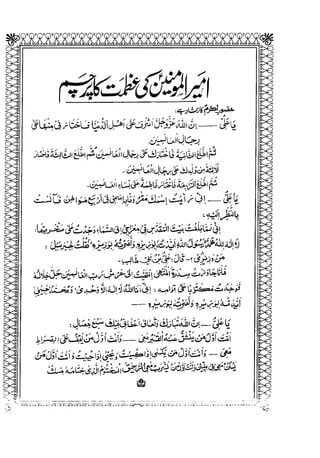 امیر المومنین کی عظمت کا پرچم
حضور اکرم کا ارشاد ہے۔
یَا عَلِیُّ —— اِنَّ اللّٰهَ عَزَّوَجَلَّ اَشْرَفَ عَلٰی اَهْلِ الدُّنْیَا فَاخْتَارَنِیْ مِنْهَا عَلٰی
رِجَالِ الْعَالَمِیْنَ۔
ثُمَّ اطَّلَعَ الثَّانِیَةَ فَاخْتَارَكَ عَلٰی رِجَالِ الْعَالَمِیْنَ ثُمَّ اطَّلَعَ الثَّالِثَةَ فَاخْتَارَ
الْاَئِمَّةَ مِنْ وُلْدِكَ عَلٰی رِجَالِ الْعَالَمِیْنَ۔
ثُمَّ اطَّلَعَ الرَّابِعَةَ فَاخْتَارَ فَاطِمَةَ عَلٰی نِسَاءِ الْعَالَمِیْنَ۔
یَا عَلِیُّ —— اِنِّیْ رَاَیْتُ اسْمَكَ مَقْرُوْنًا بِاسْمِیْ فِیْ اَرْبَعَةِ مَوَاطِنَ فَاٰنَسْتُ
بِالنَّظَرِ اِلَیْهِ:
اِنِّیْ لَمَّا بَلَغْتُ بَیْتَ الْمُقَدَّسِ فِیْ مِعْرَاجِیْ اِلَی السَّمَاءِ وَجَدْتُ عَلٰی صَخْرَتِهَا:
لَا اِلٰهَ اِلَّا اللّٰهُ مُحَمَّدٌ رَسُوْلُ اللّٰهِ اَیَّدْتُهُ بِوَزِیْرِهِ وَنَصَرْتُهُ بِوَزِیْرِهِ فَقُلْتُ لِجِبْرَئِیْلَ:
مَنْ وَزِیْرِیْ؟ - قَالَ: عَلِیُّ بْنُ اَبِیْ طَالِبٍ۔
فَلَمَّا جَاوَزْتُ سِدْرَةَ الْمُنْتَهٰی اِنْتَهَیْتُ اِلٰی عَرْشِ رَبِّ الْعَالَمِیْنَ جَلَّ جَلَالُهُ
فَوَجَدْتُ مَكْتُوْبًا عَلٰی قَوَائِمِهِ: اِنِّیْ اَنَا اللّٰهُ لَا اِلٰهَ اِلَّا اَنَا وَحْدِیْ، مُحَمَّدٌ حَبِیْبِیْ
اَیَّدْتُهُ بِوَزِیْرِهِ وَنَصَرْتُهُ بِوَزِیْرِهِ ——
یَا عَلِیُّ —— اِنَّ اللّٰهَ تَبَارَكَ وَتَعَالٰی اَعْطَانِیْ فِیْكَ سَبْعَ خِصَالٍ:
اَنْتَ اَوَّلُ مَنْ یَنْشَقُّ عَنْهُ الْقَبْرُ مَعِیْ —— وَاَنْتَ اَوَّلُ مَنْ یَقِفُ عَلَی الصِّرَاطِ
مَعِیْ —— وَاَنْتَ اَوَّلُ مَنْ یُكْسٰی اِذَا كُسِیْتُ وَیَحْیٰی اِذَا حَیِیْتُ وَاَنْتَ اَوَّلُ مَنْ